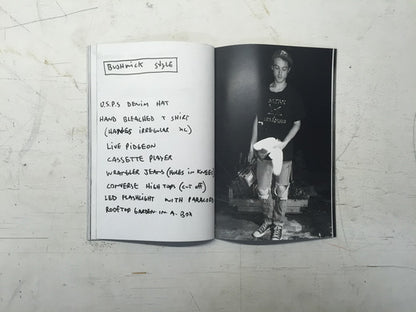 BUSHWICK STYLE
U.S.P.S DENIM HAT
HAND BLEACHED T SHIRT
(HANES IRREGULAR XL)
LIVE PIDGEON
CASSETTE PLAYER
WRANGLER JEANS (HOLES IN KNEES)
CONVERSE HIGH TOPS (CUT OFF)
LED FLASHLIGHT WITH PARACORD
ROOFTOP GARDEN-IN-A-BOX